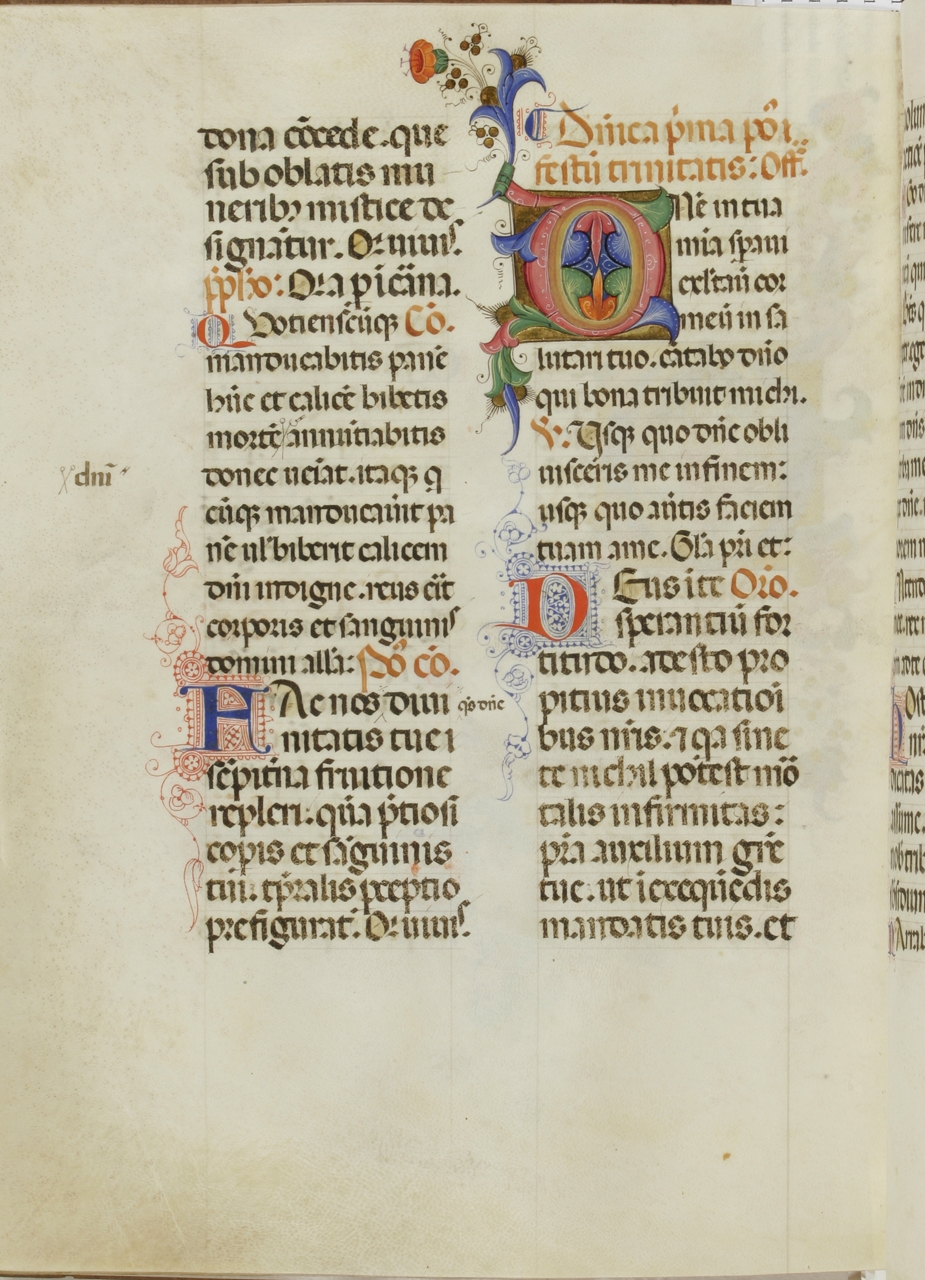 dona cōcede. que
sub oblatis mu
neribꝫ mistice de
signātur. Qui uiuis.
pp̄hō: Oīa p icāna.
Quotienscūqꝫ Cō.
manducabitis panē
hūc et calicē bibetis
mortē annūtiabitis
dnī
donec ueīat. itaqꝫ q
cūqꝫ manducauit pa
nē ul' biberit calicem
dnī indigne. reus ēit
corporis et sanguinis
domini all'a: Pō cō.
FAc nos diui
qs dn̄e
nitatis tue ī
sēpit'na fruitione
repleri. quā p̄tiosi
corpis et sāguinis
tui. tp̄ralis preptio
prefigurat. Qui uiuis.
Dn̄ica p̄ma pō ī
festū trinitatis: Off.
DNē in tua
mīa speraui
exltauī cor
meū in sa
lutari tuo. cātabo dn̄o
qui bona tribuit michi.
V. Usqꝫ quo dn̄e obli
uisceris me in finem:
usqꝫ quo aūtis faciem
tuam a me. Gl'a pr̄i et:
DEus in te Orō.
sperantiū for
titudo. adesto pro
pitius inuocatioī
bus nr̄is. ⁊ qa sine
te nichil potest mō
talis infirmitas:
pr̄a auxilium gr̄e
tue. ut ī exequēdis
mandatis tuis. et